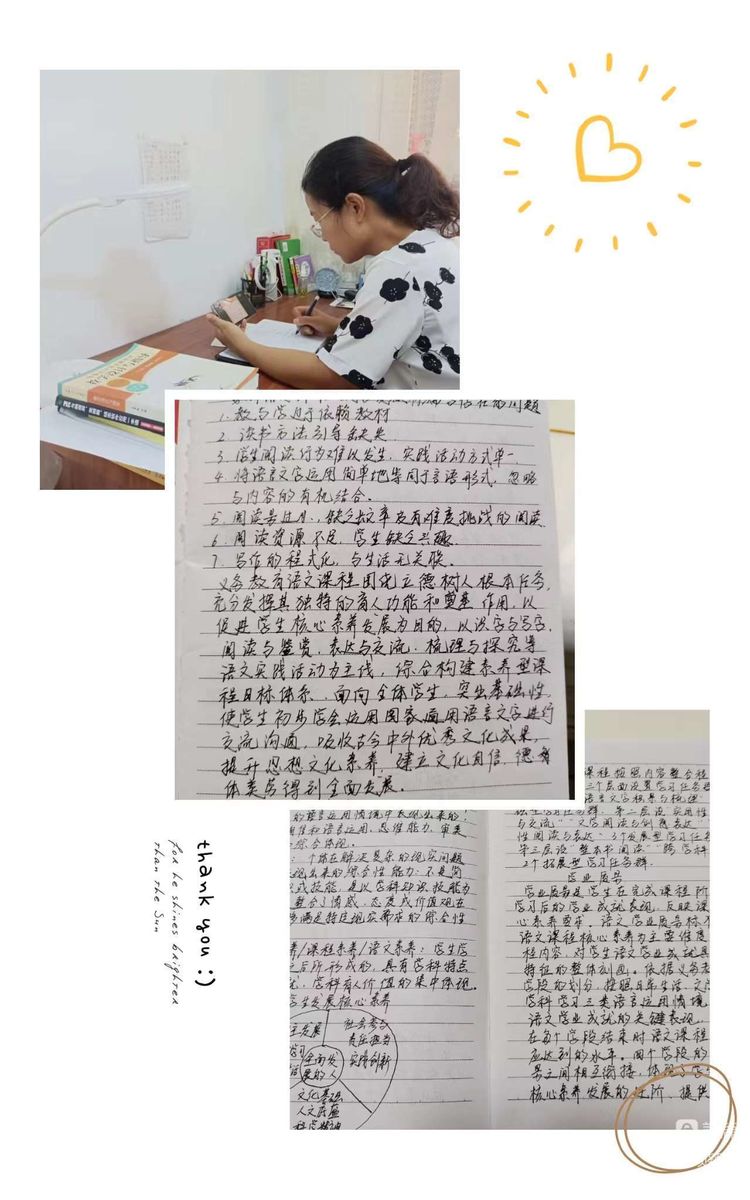 1. 教与学过于依赖教材
2. 读书方法引导缺失
3. 学生阅读行为难以发生，实践活动方式单一
4. 将语言文字运用简单地等同于言语形式，忽略
与内容的有机结合。
5. 阅读量过小，缺乏效率及有难度挑战的阅读
6. 阅读资源不足，学生缺乏兴趣
7. 写作的程式化，与生活无关联。
义务教育语文课程围绕立德树人根本任务，
充分发挥其独特的育人功能和奠基作用，以
促进学生核心素养发展为目的，以识字与写字、
阅读与鉴赏、表达与交流、梳理与探究等
语文实践活动为主线，综合构建素养型课
程目标体系，面向全体学生，突出基础性，
使学生初步学会运用国家通用语言文字进行
交流沟通，吸收古今中外优秀文化成果，
提升思想文化素养，建立文化自信，德智
体美劳得到全面发展。
的语言运用情境中表现出来的，
语言运用、思维能力、审美
综合体现。
个体在解决复杂的现实问题
现出来的综合性能力：不是简
式技能，是以学科知识技能为
整合了情感、态度或价值观在
够满足特定现实需求的综合性
养/课程素养/语文素养：学生学
之后所形成的，具有学科特点
就，学科育人价值的集中体现。
学生发展核心素养
主发展
社会参与
责任担当
实践创新
全面发
展的人
文化基础
人文底蕴
科学精神
课程按照内容整合程
三个层面设置学习任务群
语言文字积累与梳理
第二层设“实用性
与交流”“文学阅读与创意表达”
性阅读与表达”3个发展型学习任务
第三层设“整本书阅读”“跨学科
2个拓展型学习任务群
学业质量
学业质量是学生在完成课程阶
学习后的学业成就表现，反映课
心素养要求。语文学业质量标
语文课程核心素养为主要维度
程内容，对学生语文学业成就具
特征的整体刻画。依据义务教
学段的划分，按照日常生活、文学
学科学习三类语言运用情境
语文学业成就的关键表现，
在每个学段结束时语文课程
应达到的水平。四个学段的
量之间相互衔接，体现
核心素养发展的进阶，提供
thank you :)
for he shines brighter
than the Sun